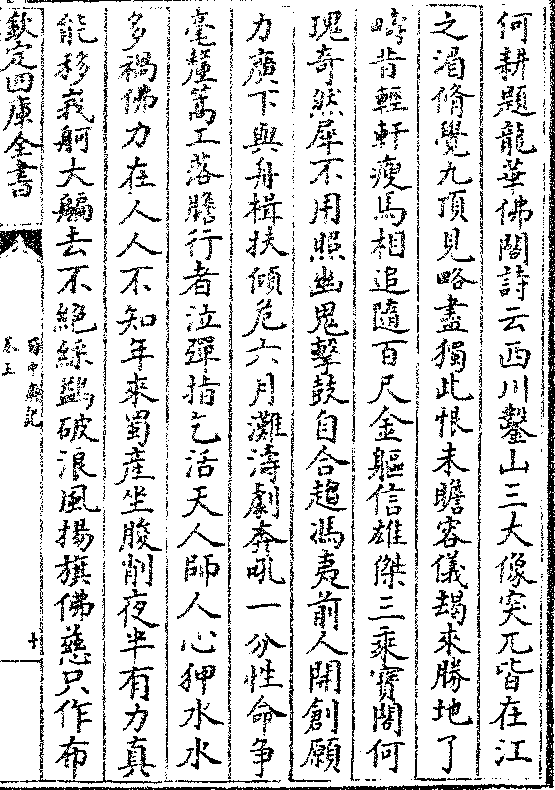 何耕題龍華佛閣詩云西川鑿山三大像突兀皆在江
之湄脩覺九頂見略盡獨此恨未瞻容儀朅來勝地了
疇昔輕軒瘦馬相追隨百尺金軀信雄傑三乘寳閣何
瑰奇然犀不用照幽鬼擊鼓自合趨馮夷前人開創願
力廣下與舟楫扶傾危六月灘濤劇奔吼一分性命爭
毫釐蒿工落膽行者泣彈指乞活天人師人心狎水水
多禍佛力在人人不知年來蜀產坐朘削夜半有力真
能移峩舸大艑去不絶綵鷁破浪風揚旗佛慈只作布
欽定四庫全書
蜀中廣記
卷五
十